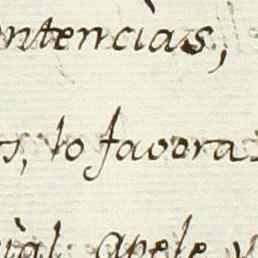 ntencias,
s, lo favora
ial apele y